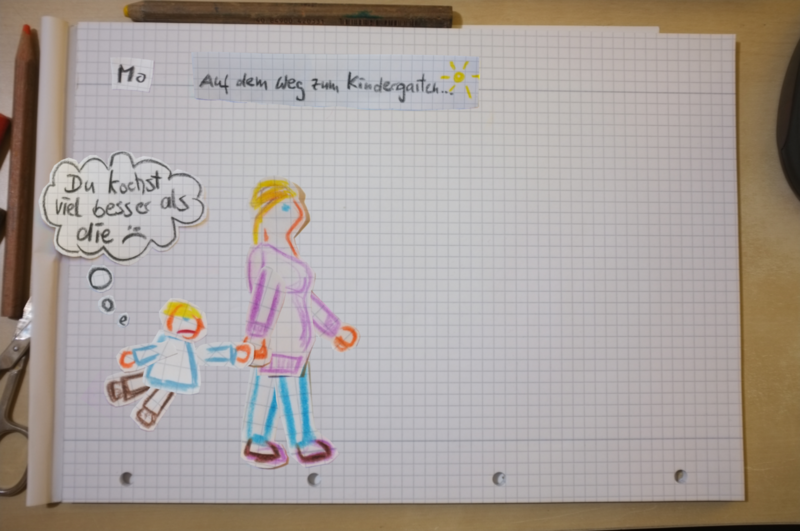 Mo
Auf dem Weg zum Kindergarten...
Du kochst
viel besser als
die